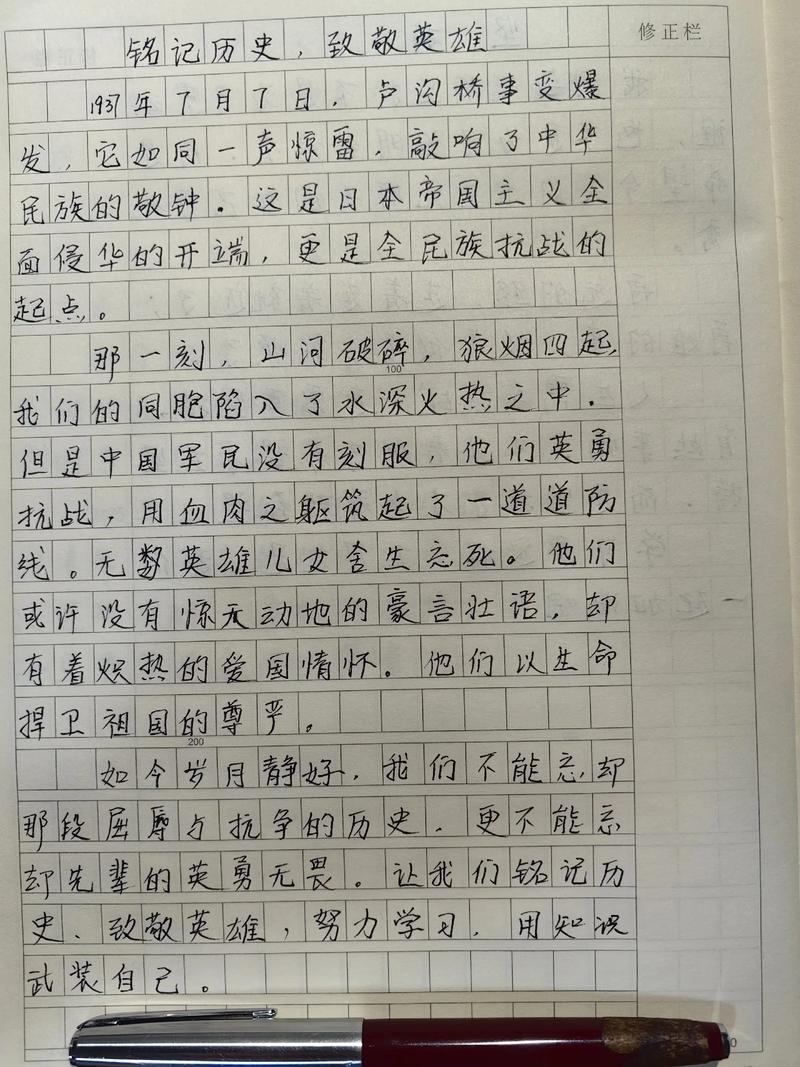 修正栏
铭记历史，致敬英雄
1937年7月7日，卢沟桥事变爆
发，它如同一声惊雷，敲响了中华
民族的敬钟。这是日本帝国主义全
面侵华的开端，更是全民族抗战的
起点。
那一刻，山河破碎，狼烟四起，
100
我们的同胞陷入了水深火热之中．
但是中国军民没有刻服，他们英勇
抗战，用血肉之躯筑起了一道道防
线。无数英雄儿女舍生忘死。他们
或许没有惊天动地的豪言壮语，却
有着炽热的爱国情怀。他们以生命
捍卫祖国的尊严。
200
如今岁月静好，我们不能忘却
那段屈辱与抗争的历史，更不能忘
却先辈的英勇无畏。让我们铭记历
史、致敬英雄，努力学习，用知识
武装自己。